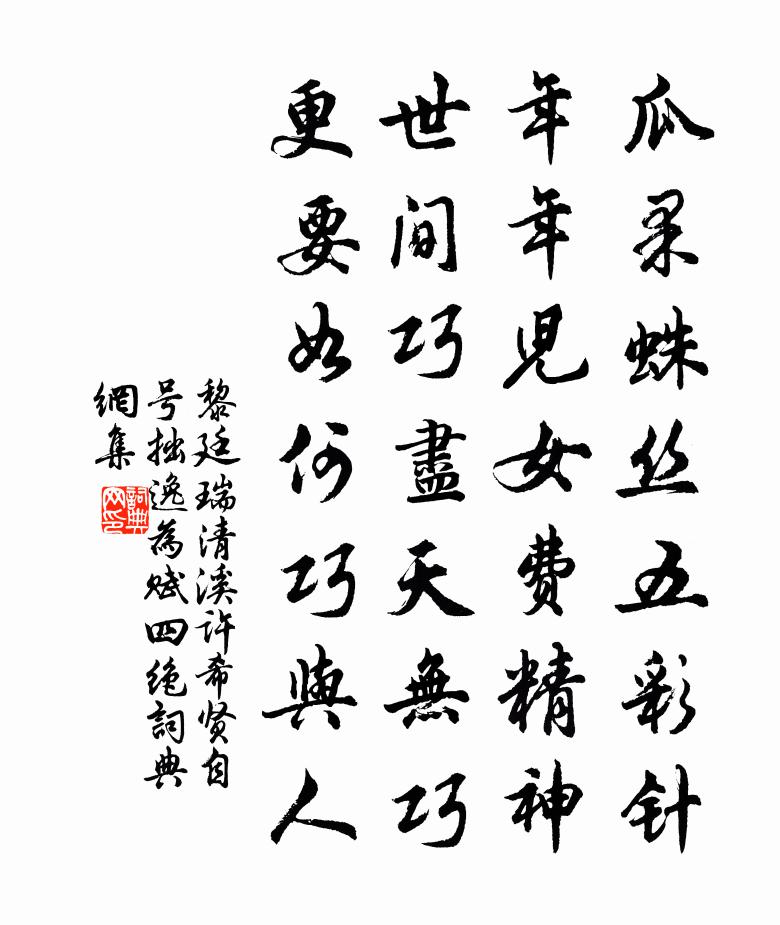 瓜果蛛丝五彩针
年年児女费精神
世间巧盡天無巧
更要如何巧與人
黎廷瑞清溪许希贤自
号拙逸為赋四绝詞典
網集
詞典网印